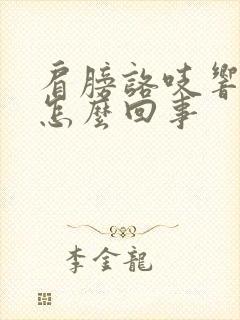 肩膀詻吱響
怎麼回事
李金龍